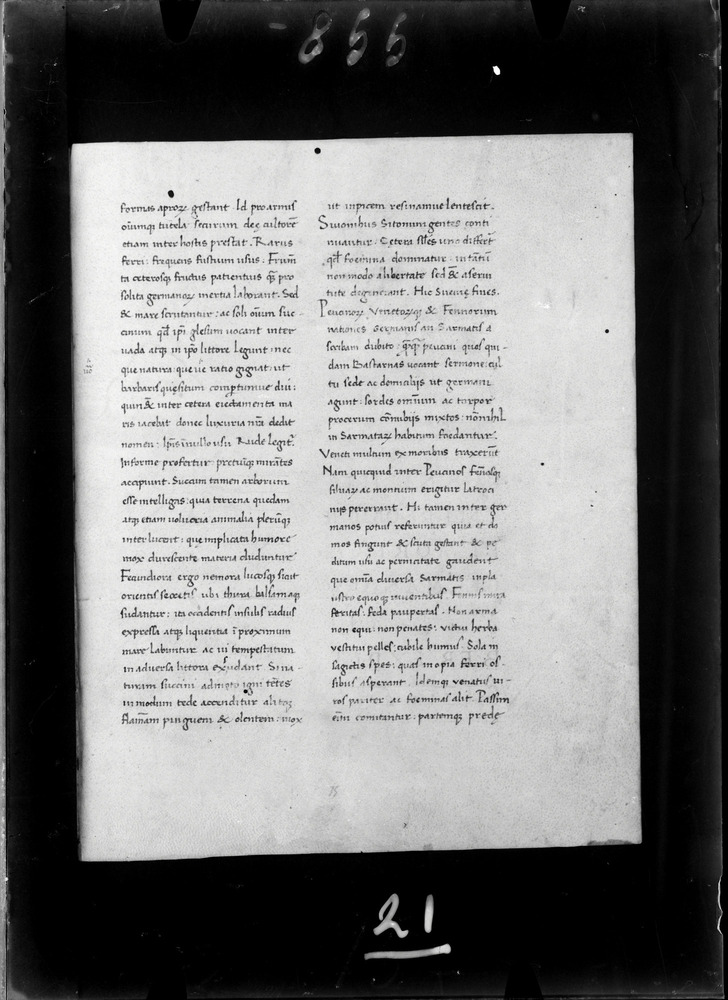 -855
formas aproꝝ gestant. Id pro armis
oĩumqɜ tutela securum deę cultorẽ
etiam inter hostis prestat. Rarus
ferri: frequens fustium usus. Frum̃
ta ceterosqɜ fructus patientius q̃ pro
solita germanoꝝ inertia laborant. Sed
& mare scrutantur: ac soli oĩum suc-
cinum qd̃ ip̃i glesum uocant inter
uada atqɜ in ip̃o littore legunt: nec
que natura: que ue ratio gignat: ut
barbaris quęsitum compertumue diu:
quin & inter cetera eiectamenta ma
ris iacebat donec luxuria nr̃a dedit
nomen: Ip̃is ĩ nullo usu. Rude legit̃:
Informe profertur: pretiũqɜ mirãtes
accipiunt. Succum tamen arborum
esse intelligas: quia terrena quedam
atqɜ etiam volucria animalia plerũqɜ
inter lucent: que implicata humore
mox durescente materia cluduntur
Fecundiora ergo nemora lucosqɜ sicut
orientis secretis ubi thura balsamaqɜ
sudantur: ita occidentis insulis radiis
expressa atqɜ liquentia ĩ proximum
mare labuntur ac ui tempestatum
in aduersa littora exsudant. Si na-
turam succini admoto igni tẽtes
in modum tede accenditur alitqɜ
flam̃am pinguem & olentem: mox
ut in picem resinamue lentescit.
Suionibus Sitonum gentes conti
nuantur. Cetera sĩles uno differt̃
qd̃ foemina dominatur: in tãtũ
non modo a libertate sed & a serui
tute degenerant. Hic Sueuię fines.
Peucinoꝝ Venetoꝝqɜ & Fennorum
nationes Germanis an Sarmatis a
scribam dubito: q̃q̃ peucini quos qui-
dam Bastarnas uocant sermone: cul
tu sede ac domiciliis ut germani
agunt: sordes omnium ac torpor
procerum cõnubiis mixtos: nõnihil
in Sarmataꝝ habitum foedantur.
Veneti multum ex moribus traxerũt
Nam quicquid inter Peucinos Fẽnosqɜ
siluaꝝ ac montium erigitur latroci
niis pererrant. Hi tamen inter ger
manos potius referuntur quia et do
mos fingunt & scuta gestant & pe
ditum usu ac pernicitate gaudent
que omĩa diuersa Sarmatis in pla
ustro equoqɜ uiuentibus. Fennis mira
feritas: feda paupertas. Non arma
non equi: non penates: uictui herba
vestitui pelles: cubile humus. Sola in
sagittis spes: quas inopia ferri os-
sibus asperant. Idemqɜ venatus ui-
ros pariter ac foeminas alit. Passim
eĩm comitantur: partemqɜ prede
21